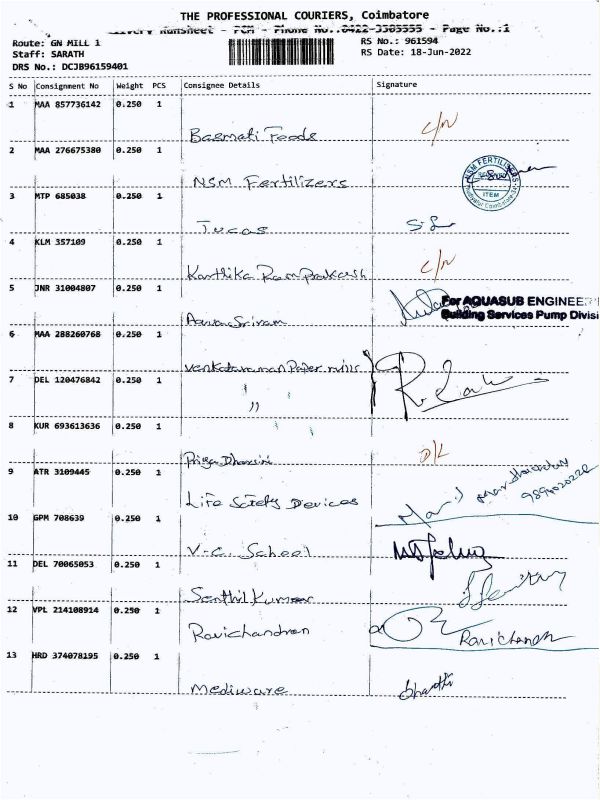 THE PROFESSIONAL COURIERS, Coimbatore
Delivery Runsheet - PCM - Phone No.:0422-3305555 - Page No.:1
Route: GN MILL 1
RS No.: 961594
Staff: SARATH
RS Date: 18-Jun-2022
DRS No.: DCJB96159401
S No Consignment No Weight PCS Consignee Details Signature
1 MAA 857736142 0.250 1
Basmati Foods C/N
2 MAA 276675380 0.250 1
NSM Fertilizers
NSM FERTILIZERS
ITEM
3 MTP 685038 0.250 1
Tucas
4 KLM 357109 0.250 1
Karthika Ramprakash C/N
5 JNR 31004807 0.250 1
For AQUASUB ENGINEER
Building Services Pump Divisi
6 MAA 288260768 0.250 1
Venkataraman Paper mills
7 DEL 120476842 0.250 1
"
8 KUR 693613636 0.250 1
Priya Dharsini D/L
9 ATR 3109445 0.250 1
Life Safety Devices
10 GPM 708639 0.250 1
V.C. School
11 DEL 70065053 0.250 1
Senthil Kumar
12 VPL 214108914 0.250 1
Ravichandran Ravichandran
13 HRD 374078195 0.250 1
Mediware bharathi